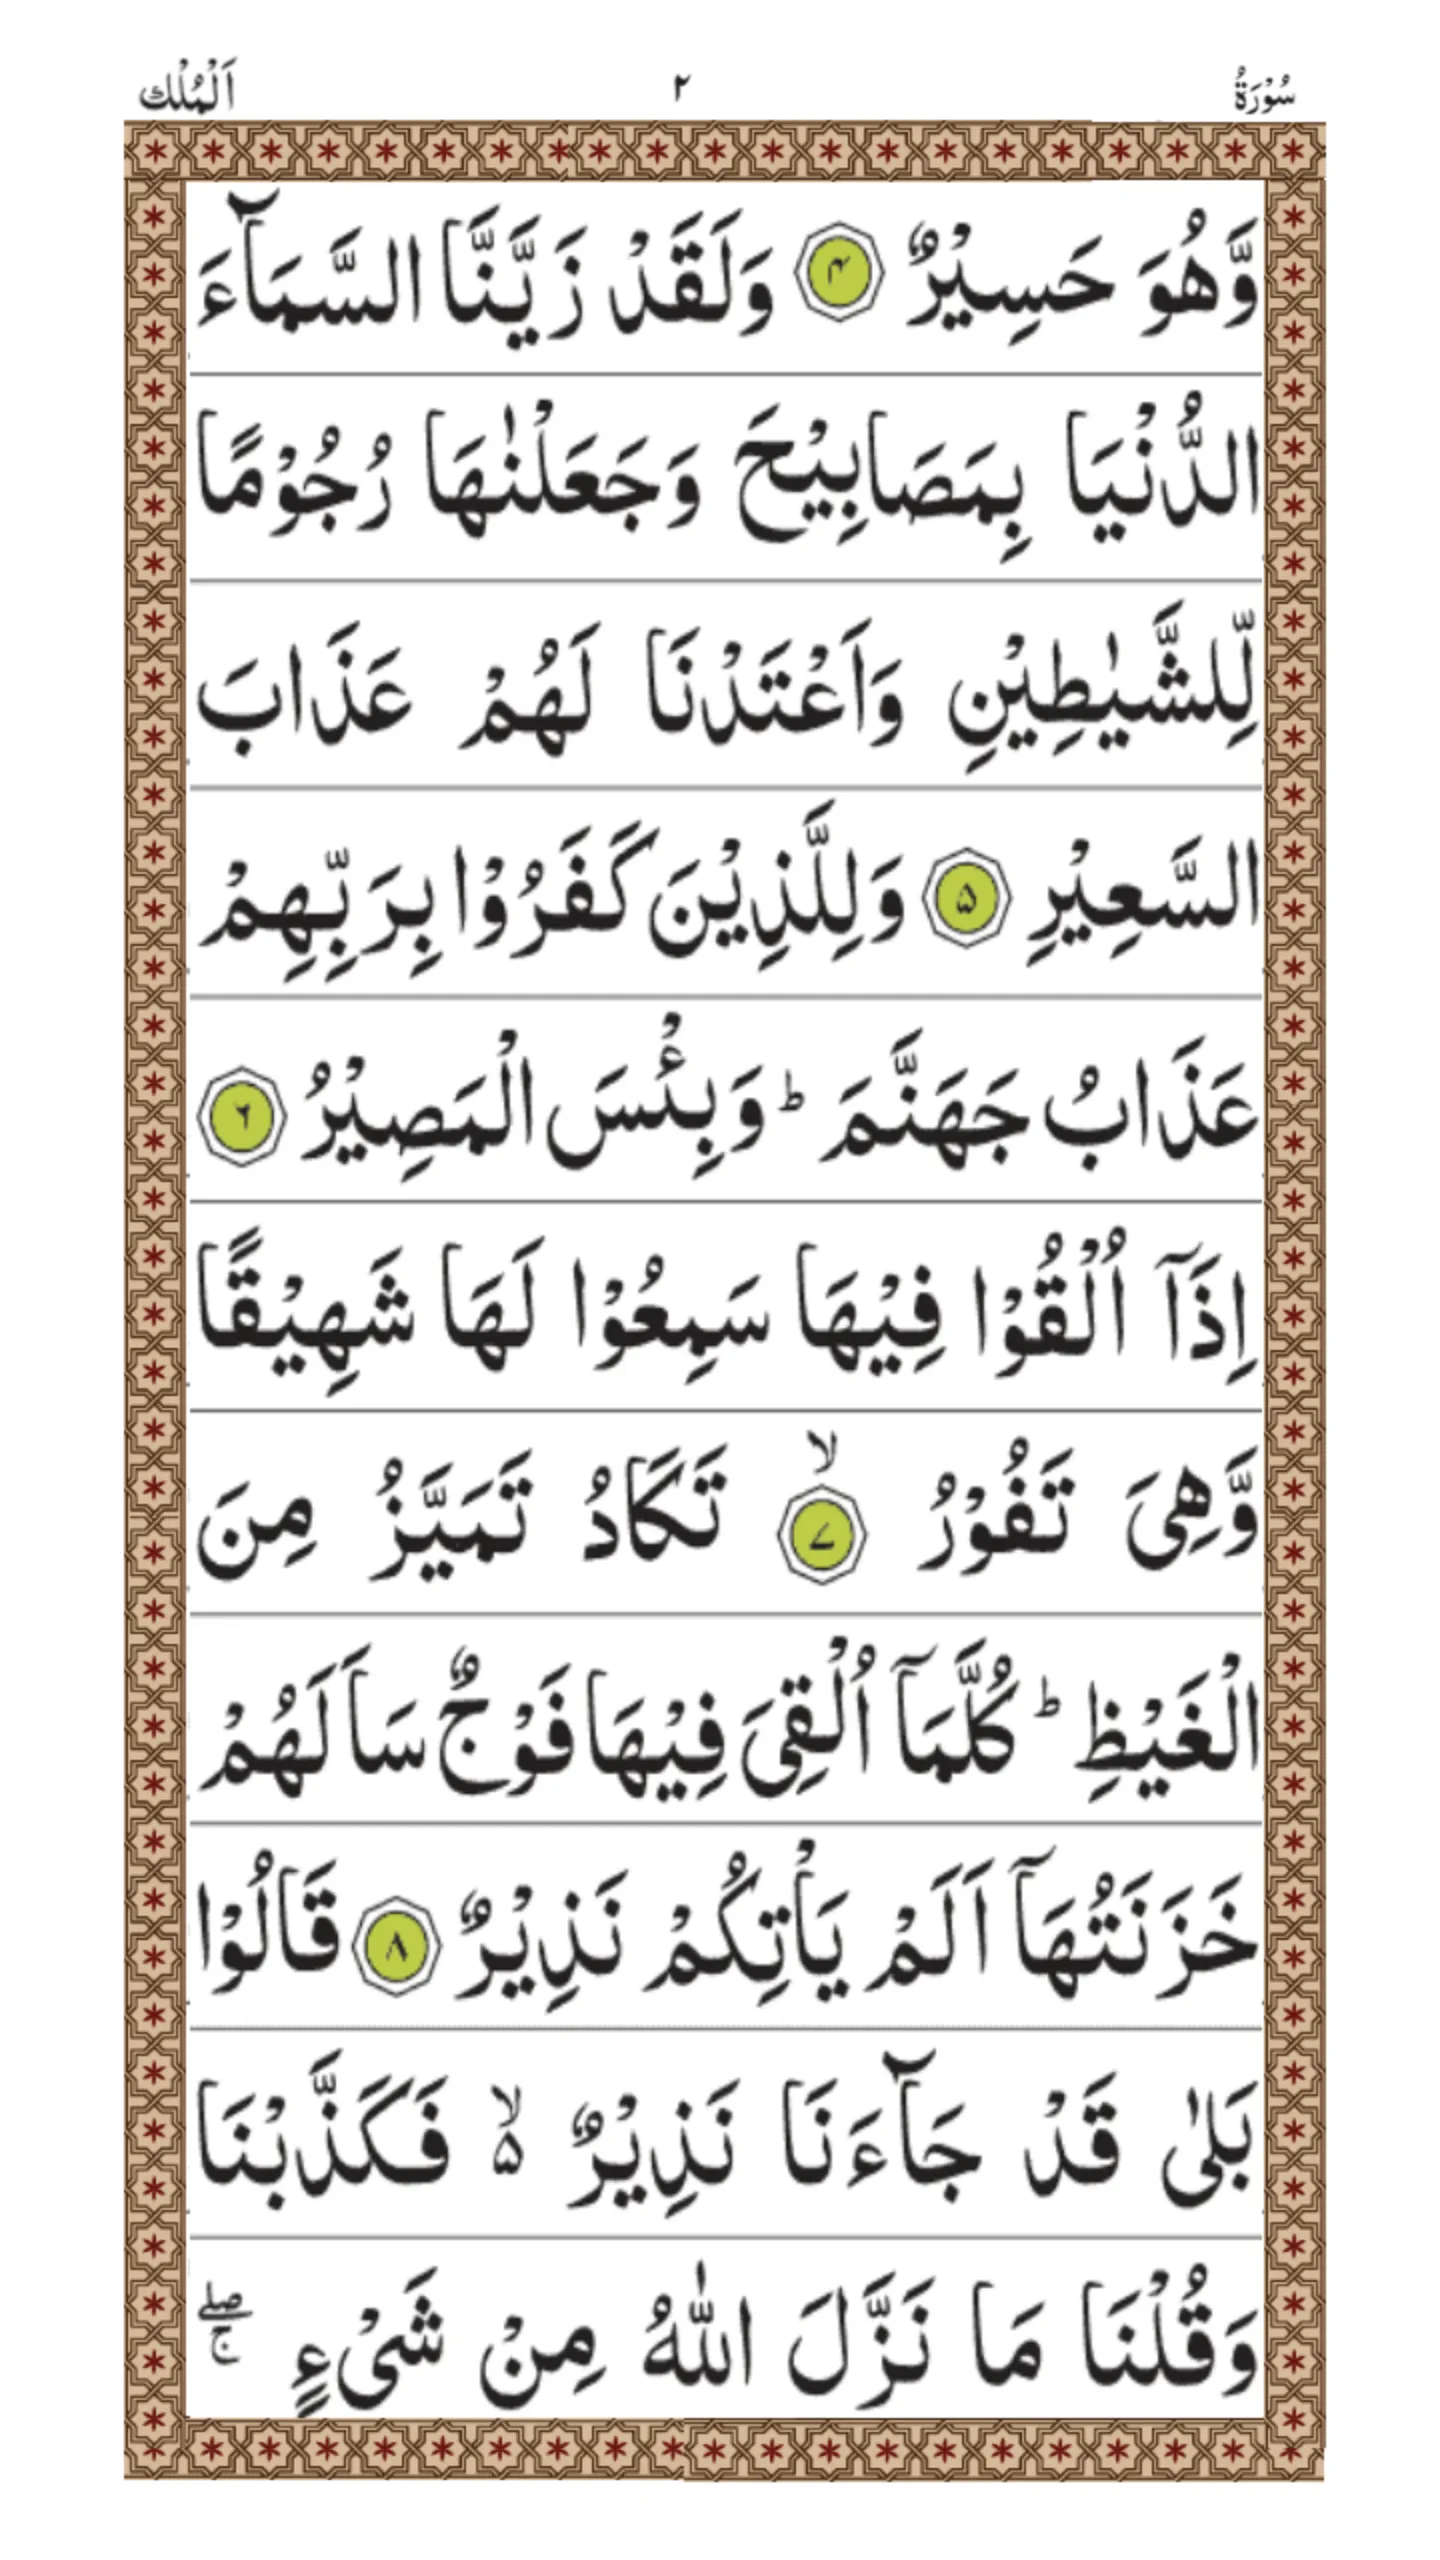 سُوْرَةُ ٢ اَلْمُلْك
وَّهُوَ حَسِيْرٌ ۴ وَلَقَدْ زَيَّنَّا السَّمَآءَ
الدُّنْيَا بِمَصَابِيْحَ وَجَعَلْنٰهَا رُجُوْمًا
لِّلشَّيٰطِيْنِ وَاَعْتَدْنَا لَهُمْ عَذَابَ
السَّعِيْرِ ۵ وَلِلَّذِيْنَ كَفَرُوْا بِرَبِّهِمْ
عَذَابُ جَهَنَّمَ ؕ وَبِئْسَ الْمَصِيْرُ ۶
اِذَآ اُلْقُوْا فِيْهَا سَمِعُوْا لَهَا شَهِيْقًا
وَّهِىَ تَفُوْرُ ۙ ۷ تَكَادُ تَمَيَّزُ مِنَ
الْغَيْظِ ؕ كُلَّمَآ اُلْقِىَ فِيْهَا فَوْجٌ سَاَلَهُمْ
خَزَنَتُهَآ اَلَمْ يَاْتِكُمْ نَذِيْرٌ ۸ قَالُوْا
بَلٰى قَدْ جَآءَنَا نَذِيْرٌ ۵ۙ فَكَذَّبْنَا
وَقُلْنَا مَا نَزَّلَ اللّٰهُ مِنْ شَىْءٍ ۖۚ